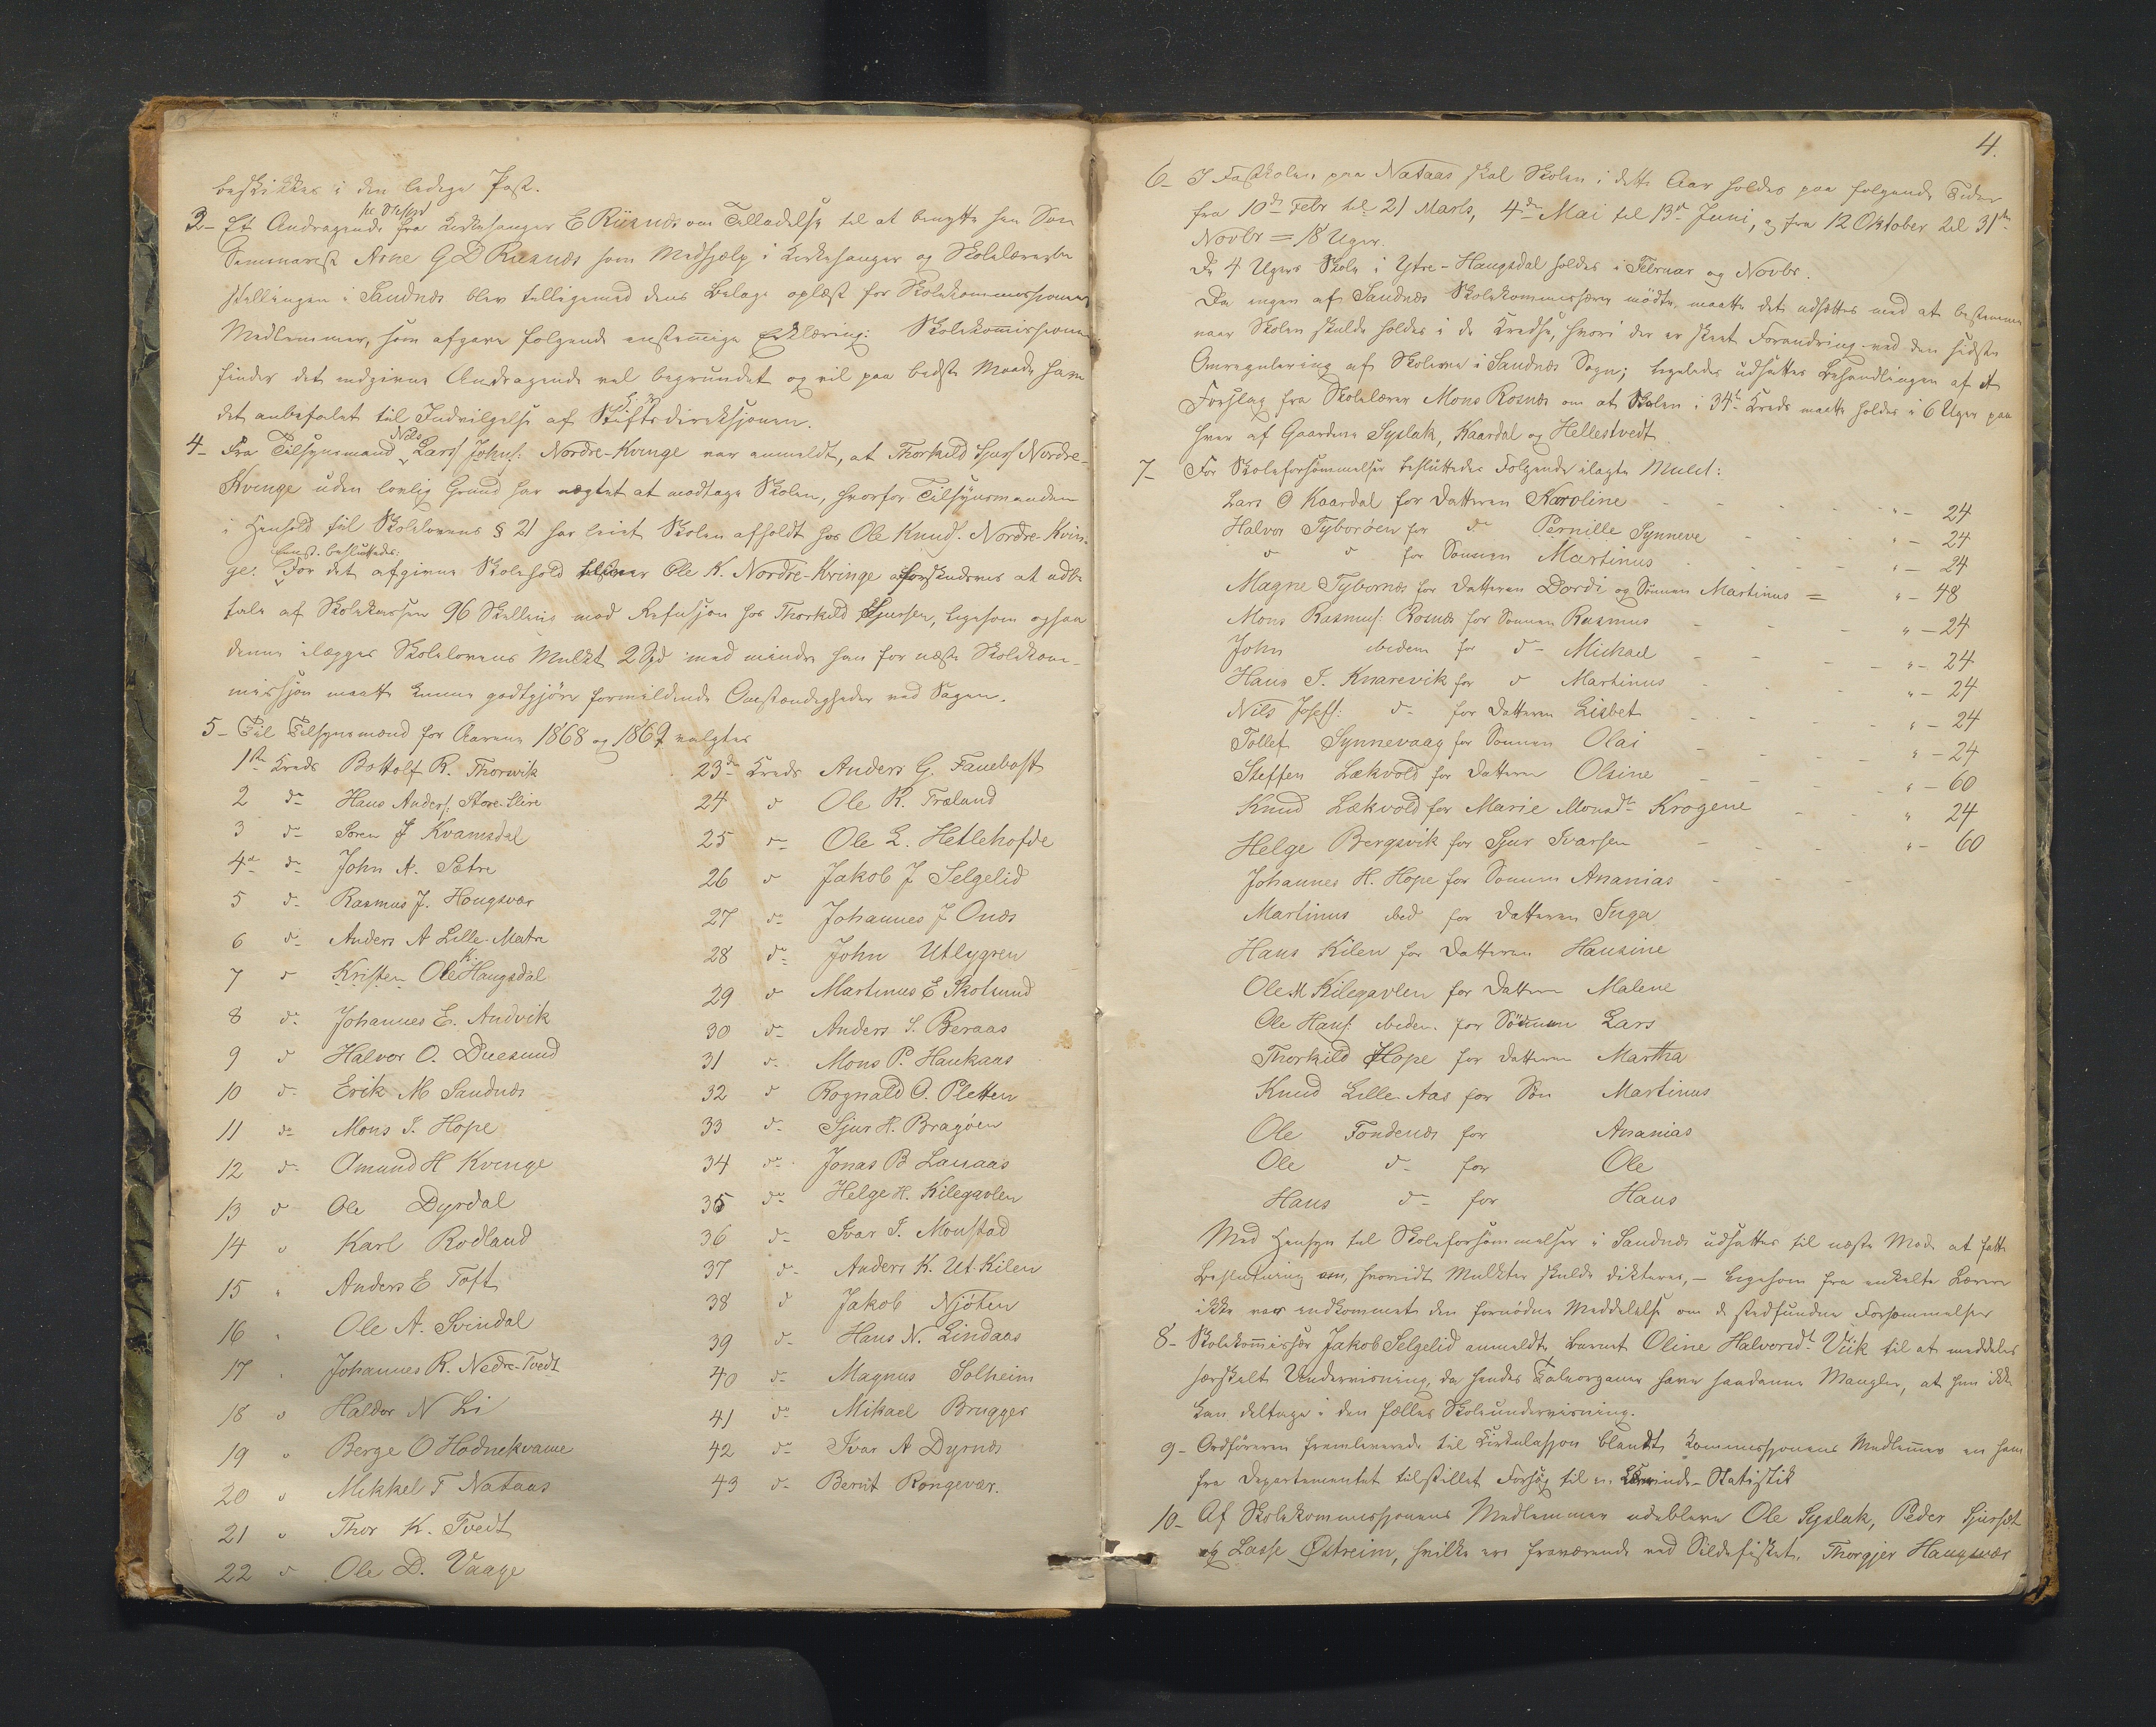 beskikkes i den ledige Post.
3- Et Andragende fra Kirkesanger E Risnes om Tilladelse til at benytte sin Søn
Seminarist Arne G D Risnes som Medhjælp i Kirkesanger og Skolelærer
stillingen i Sandnes blev tilligemed dens Bilage oplæst for Skolekommissionens
Medlemmer, som afgave følgende enstemige Erklæring: Skolekommissionen
finder det indgivne Andragende vel begrundet og vil paa bedste Maade have
det anbefalet til Indvilgelse af Stiftsdireksjonen.
4- Fra Tilsynsmand Nils Larss Johns: Nordre-Kvinge var anmeldt, at Thorkild Sjurs Nordre-
Kvinge uden lovlig Grund har nægtet at modtage Skolen, hvorfor Tilsynsmanden
i Henhold til Skolelovens § 21 har leiet Skolen afholdt hos Ole Knuds. Nordre-Kvin-
ge. Enst. besluttedes: For det afgivne Skolehold Ole K. Nordre-Kvinge at udbe
tale af Skolekassen 96 Skilling mod Refusjon hos Thorkild Sjursen, ligesom ogsaa
denne ilægges Skolelovens Mulkt 2 Spd med mindre han for næste Skolekom-
missjon maatte kunne godtgjøre formildende Omstændigheder ved Sagen.
5- Til Tilsynsmænd for Aarene 1868 og 1869 valgtes
1ste Kreds Bottolf R. Thorsvik
2 do Hans Anders: Store-Mire
3 do Søren J Kvamsdal
4de do John A. Sætre
5 do Rasmus J. Hougsvær
6 do Anders A Lille-Matre
7 do Kristen Ole K. Haugsdal
8 do Johannes E. Andvik
9 do Halvor O. Duesund
10 do Erik M Sandnes
11 do Mons I. Hope
12 do Amund H Kvinge
13 do Ole Dyrdal
14 " Karl Rødland
15 " Anders E Toft
16 " Ole A. Svindal
17 " Johannes R. Nedre-Tvedt
18 " Haldor N Li
19 " Berge O Hodnekvame
20 " Mikkel T Nataas
21 " Thor K. Tvedt
22 " Ole D. Vaage
23de Kreds Anders G. Fanebost
24 do Ole R. Træland
25 do Ole L. Hetlehofde
26 do Jakob J Selgelid
27 do Johannes J Ones
28 do John Utlygren
29 do Martinus E Skotsund
30 do Anders S. Beraas
31 do Mons P. Haukaas
32 do Rognald O. Pletten
33 do Sjur H. Bragøen
34 do Jonas B Lauaas
35 do Helge H. Kilegavlen
36 do Ivar I. Monstad
37 do Anders K. Ut-Kilen
38 do Jakob Njøten
39 do Hans N. Lindaas
40 do Magnus Solheim
41 do Mikael Brugger
42 do Ivar A Dyrnes
43 do Bernt Rongevær.
4.
6- I Fastskolen paa Nataas skal Skolen i dette Aar holdes paa følgende Tider
fra 10de Febr til 21 Marts, 4de Mai til 13de Juni, og fra 12 Oktober til 31te
Novbr = 18 Uger.
De 4 Ugers Skole i Ytre-Haugsdal holdes i Februar og Novbr.
Da ingen af Sandnes Skolekommissærer mødte, maatte det udsættes med at bestemme
naar Skolen skulde holdes i de Kredse, hvori der er skeet Forandring ved den sidste
Omregulering af Skolerne i Sandnes Sogn; ligeledes udsattes Behandlingen af et
Forslag fra Skolelærer Mons Rosnes om at Skolen i 34te Kreds maatte holdes i 6 Uger paa
hver af Gaardene Syslak, Kaardal og Hellestvedt.
7- For Skoleforsømmelser besluttedes Følgende ilagte Mulct:
Lars O Kaardal for Datteren Karoline " - 24
Halvor Tyborøen for do Pernille Synneve " - 24
do do for Sønnen Martinus " - 24
Magne Tybornes for Datteren Dordi og Sønnen Martinus = " - 48
Mons Rasmus: Rosnes for Sønnen Rasmus " - 24
John ibidem for do Michael " - 24
Hans I. Knarevik for do Martinus " - 24
Nils Josefs: do for Datteren Lisbet " - 24
Tollef Synnevaag for Sønnen Olai " - 24
Steffen Lækvold for Datteren Olsine " - 60
Knud Lækvold for Marie Monsdtr Krogene " 24
Helge Bergsvik for Sjur Ivarsen " - 60
Johannes H. Hope for Sønnen Ananias
Martinus ibid for Datteren Inga
Hans Kilen for Datteren Hansine
Ole M Kilegavlen for Datteren Malene
Ole Hans: ibidem for Sønnen Lars
Thorkild Hope for Datteren Martha
Knud Lille-Aas for Søn Martinus
Ole Fondenes for Ananias
Ole do for Ole
Hans do for Hans
Med Hensyn til Skoleforsømmelser i Sandnes udsattes til næste Møde at fatte
Beslutning om, hvorvidt Mulkter skulde dikteres, - ligesom fra enkelte Lærere
ikke var indkommet den fornødne Meddelelse om de stedfundne Forsømmelser
8- Skolekommissær Jakob Selgelid anmeldte Barnet Oline Halvorsdt. Viik til at meddeles
særskilt Undervisning, da hendes Taleorganer have saadanne Mangler, at hun ikke
kan deltage i den fælles Skoleundervisning.
9- Ordføreren fremleverede til Cirkulasjon blandt Kommissjonens Medlemmer en ham
fra Departementet tilstillet Forsøg til en -Statistik
10- Af Skolekommissjonens Medlemmer udebleve Ole Syslak, Peder Sjursæt
og Lasse Østreim, hvilke ere fraværende ved Sildefisket. Thorgjer Haugsvær